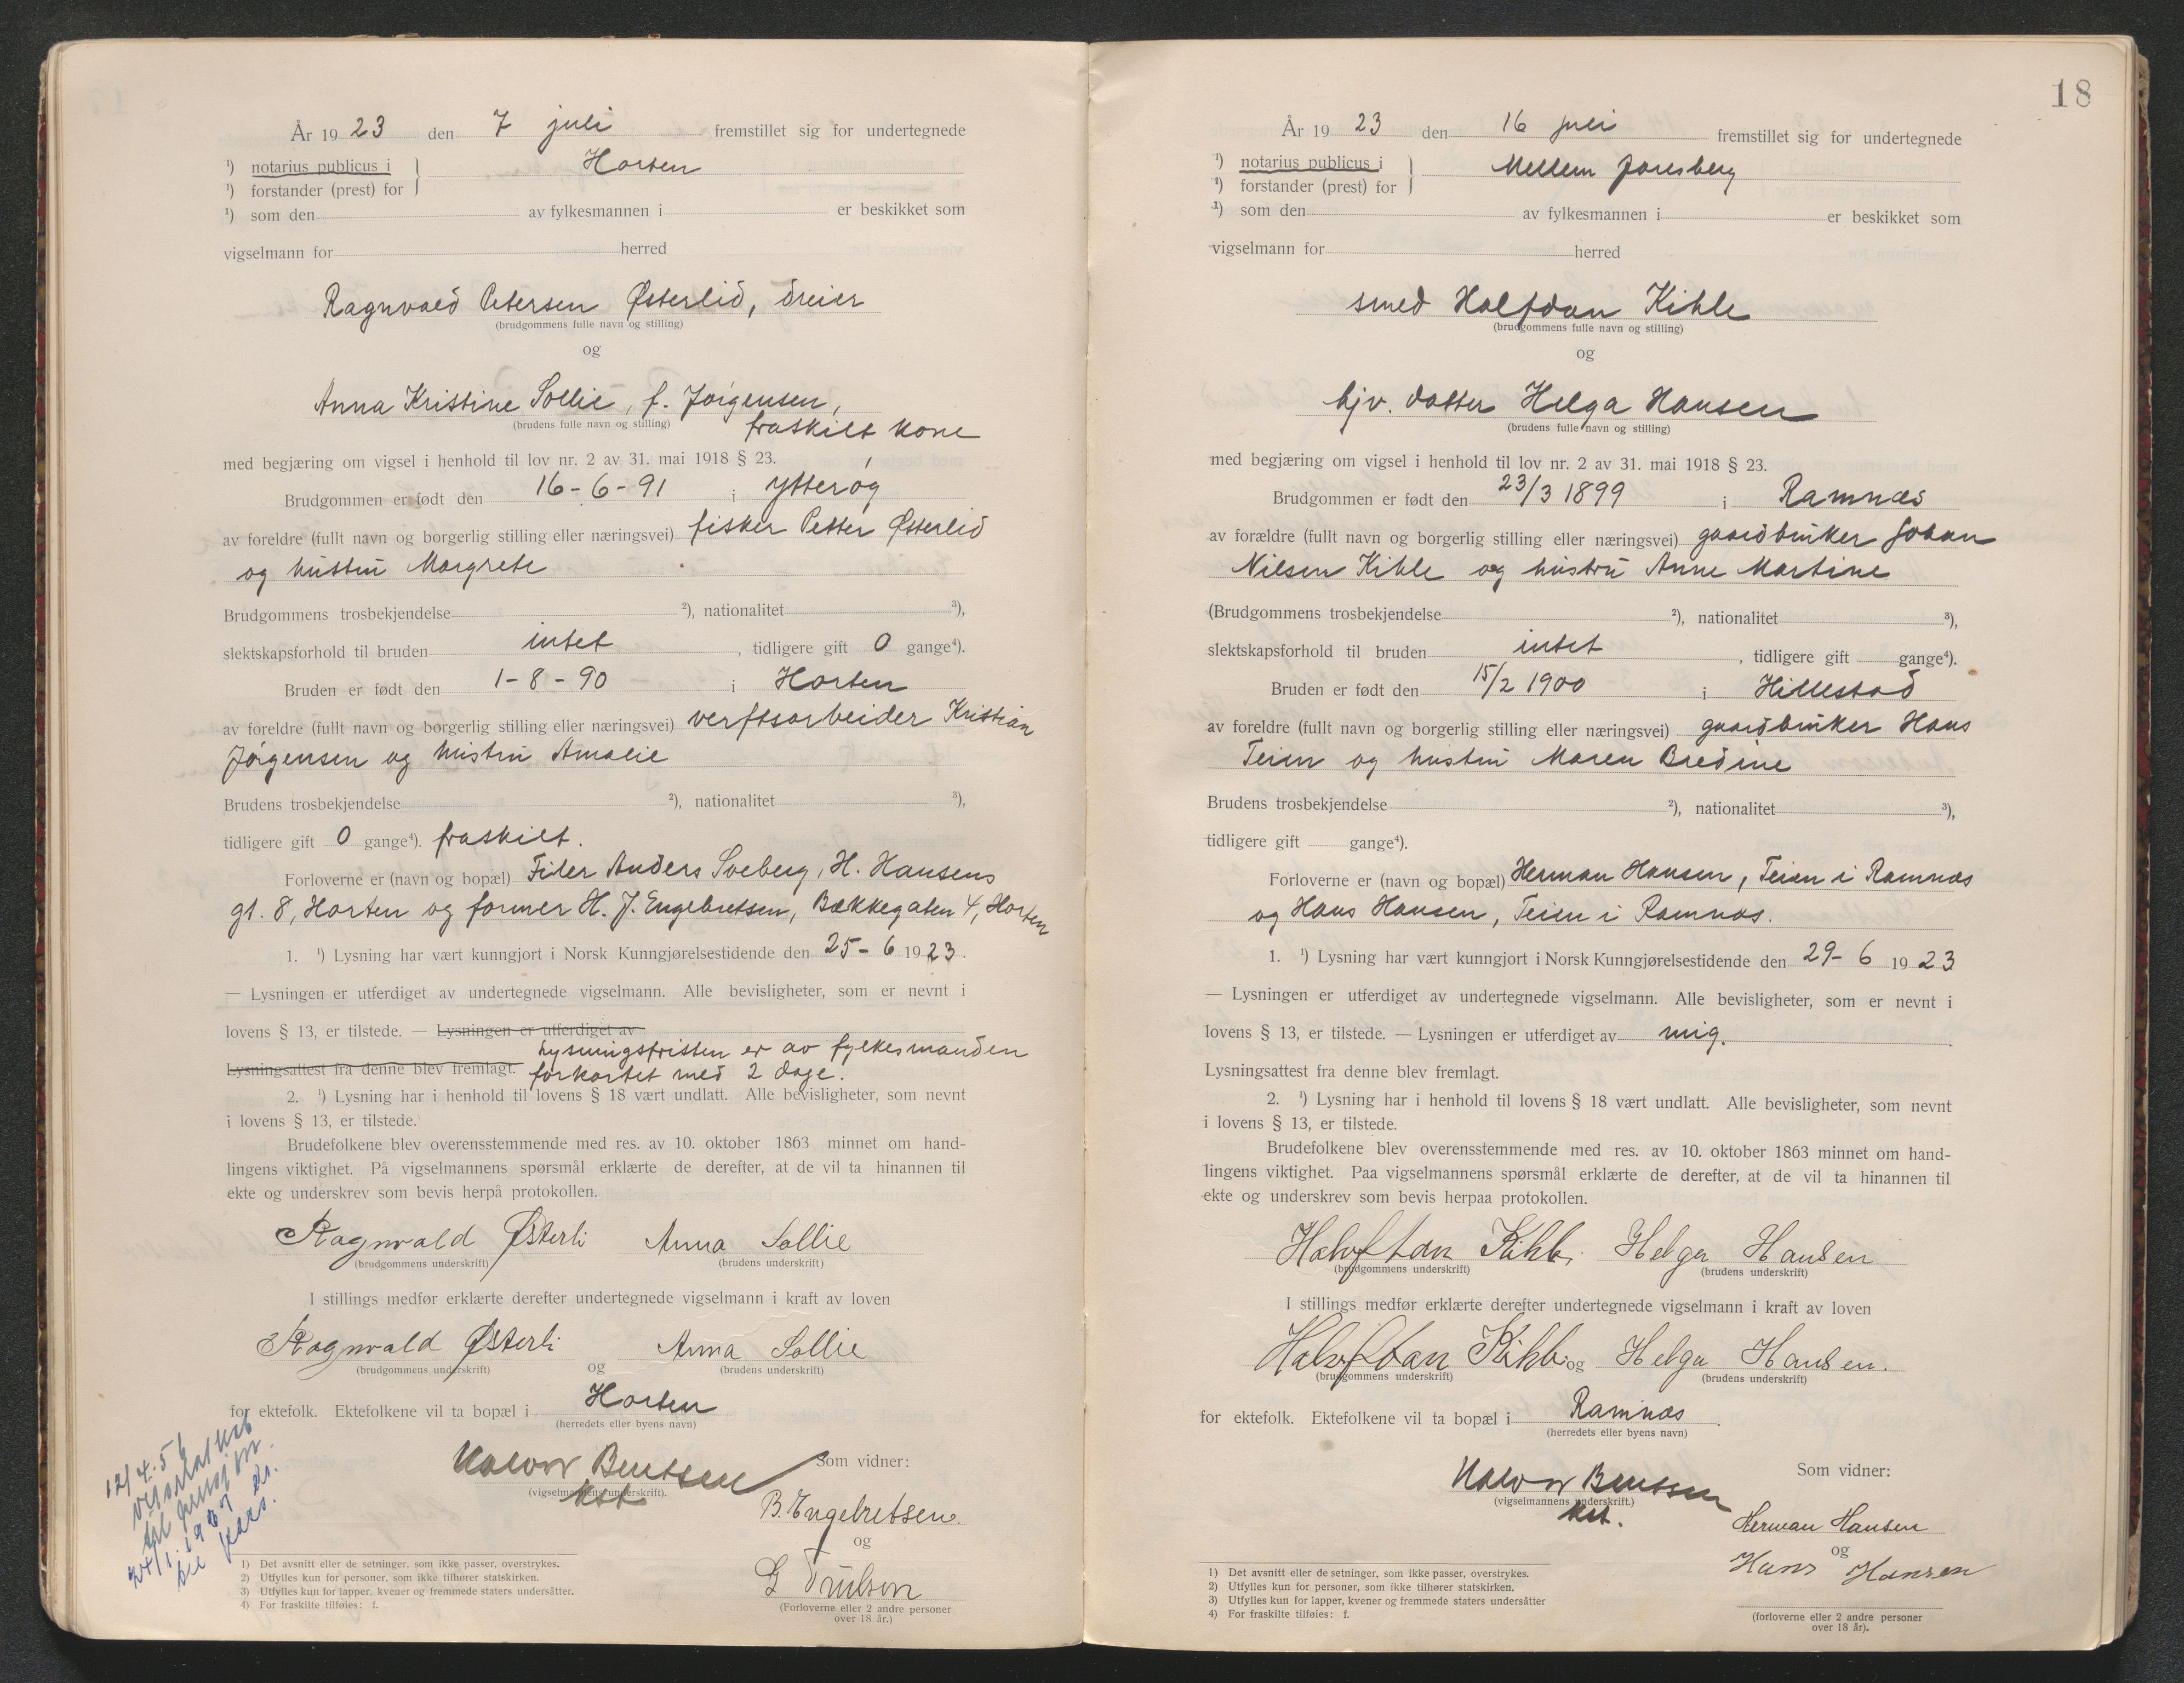 År 19 23 den 7 juli fremstillet sig for undertegnede
¹) notarius publicus i } Horten
¹) forstander (prest) for
¹) som den av fylkesmannen i er beskikket som
vigselmann for herred
Ragnvald Petersen Østerlid, dreier
(brudgommens fulle navn og stilling)
og
Anna Kristine Sollie, f. Jørgensen,
(brudens fulle navn og stilling) fraskilt kone
med begjæring om vigsel i henhold til lov nr. 2 av 31. mai 1918 § 23.
Brudgommen er født den 16-6-91 i Ytterøy
av foreldre (fullt navn og borgerlig stilling eller næringsvei) fisker Petter Østerlid
og hustru Margrete
Brudgommens trosbekjendelse ²), nationalitet ³),
slektskapsforhold til bruden intet , tidligere gift 0 gange⁴).
Bruden er født den 1-8-90 i Horten
av foreldre (fullt navn og borgerlig stilling eller næringsvei) verftsarbeider Kristian
Jørgensen og hustru Amalie
Brudens trosbekjendelse ²), nationalitet ³),
tidligere gift 0 gange⁴). fraskilt.
Forloverne er (navn og bopæl) Filer Anders Soeberg, H. Hansens
gt. 8, Horten og former H. J. Engebretsen, Bækkegaten 4, Horten
1. ¹) Lysning har vært kunngjort i Norsk Kunngjørelsestidende den 25-6 1923.
— Lysningen er utferdiget av undertegnede vigselmann. Alle bevisligheter, som er nevnt i
lovens § 13, er tilstede. — Lysningen er utferdiget av
Lysningsfristen er av fylkesmanden
Lysningsattest fra denne blev fremlagt. forkortet med 2 dage.
2. ¹) Lysning har i henhold til lovens § 18 vært undlatt. Alle bevisligheter, som nevnt
i lovens § 13, er tilstede.
Brudefolkene blev overensstemmende med res. av 10. oktober 1863 minnet om hand-
lingens viktighet. På vigselmannens spørsmål erklærte de derefter, at de vil ta hinannen til
ekte og underskrev som bevis herpå protokollen.
Ragnvald Østerli Anna Sollie
(brudgommens underskrift) (brudens underskrift)
I stillings medfør erklærte derefter undertegnede vigselmann i kraft av loven
Ragnvald Østerli og Anna Sollie
(brudgommens underskrift) (brudens underskrift)
for ektefolk. Ektefolkene vil ta bopæl i Horten
(herredets eller byens navn)
12/4.56
til
24/1.1967
Halvor Bentsen Som vidner:
(vigselmannens underskrift).
kst
B. Engebretsen.
og
G Trulsen
(Forloverne eller 2 andre personer
over 18 år.)
1) Det avsnitt eller de setninger, som ikke passer, overstrykes.
2) Utfylles kun for personer, som ikke tilhører statskirken.
3) Utfylles kun for lapper, kvener og fremmede staters undersåtter.
4) For fraskilte tilføies: f.
18
År 19 23 den 16 juli fremstillet sig for undertegnede
¹) notarius publicus i } Mellem Jaresberg
¹) forstander (prest) for
¹) som den av fylkesmannen i er beskikket som
vigselmann for herred
smed Halfdan Kihle
(brudgommens fulle navn og stilling)
og
hjv. datter Helga Hansen
(brudens fulle navn og stilling)
med begjæring om vigsel i henhold til lov nr. 2 av 31. mai 1918 § 23.
Brudgommen er født den 23/3 1899 i Ramnæs
av forældre (fullt navn og borgerlig stilling eller næringsvei) gaardbruker Johan
Nilsen Kihle og hustru Anne Martine
(Brudgommens trosbekjendelse ²), nationalitet ³),
slektskapsforhold til bruden intet , tidligere gift gange⁴).
Bruden er født den 15/2 1900 i Hillestad
av foreldre (fullt navn og borgerlig stilling eller næringsvei) gaardbruker Hans
Teien og hustru Maren Bredine
Brudens trosbekjendelse ²), nationalitet ³),
tidligere gift gange⁴).
Forloverne er (navn og bopæl) Herman Hansen, Teien i Ramnæs
og Hans Hansen, Teien i Ramnæs.
1. ¹) Lysning har vært kunngjort i Norsk Kunngjørelsestidende den 29-6 1923
— Lysningen er utferdiget av undertegnede vigselmann. Alle bevisligheter, som er nevnt i
lovens § 13, er tilstede. — Lysningen er utferdiget av mig.
Lysningsattest fra denne blev fremlagt.
2. ¹) Lysning har i henhold til lovens § 18 vært undlatt. Alle bevisligheter, som nevnt
i lovens § 13, er tilstede.
Brudefolkene blev overensstemmende med res. av 10. oktober 1863 minnet om hand-
lingens viktighet. Paa vigselmannens spørsmål erklærte de derefter, at de vil ta hinannen til
ekte og underskrev som bevis herpaa protokollen.
Halvftan Kihle. Helga Hansen
(brudgommens underskrift) (brudens underskrift)
I stillings medfør erklærte derefter undertegnede vigselmann i kraft av loven
Halvftan Kihle og Helga Hansen.
(brudgommens underskrift) (brudens underskrift)
for ektefolk. Ektefolkene vil ta bopæl i Ramnæs.
(herredets eller byens navn)
Halvor Bentsen Som vidner:
(vigselmannens underskrift.)
kst.
Herman Hansen
og
Hans Hansen
(forloverne eller 2 andre personer
over 18 år).
1) Det avsnitt eller de setninger, som ikke passer, overstrykes.
2) Utfylles kun for personer, som ikke tilhører statskirken.
3) Utfylles kun for lapper, kvener og fremmede staters undersåtter
4) For fraskilte tilføies: f.